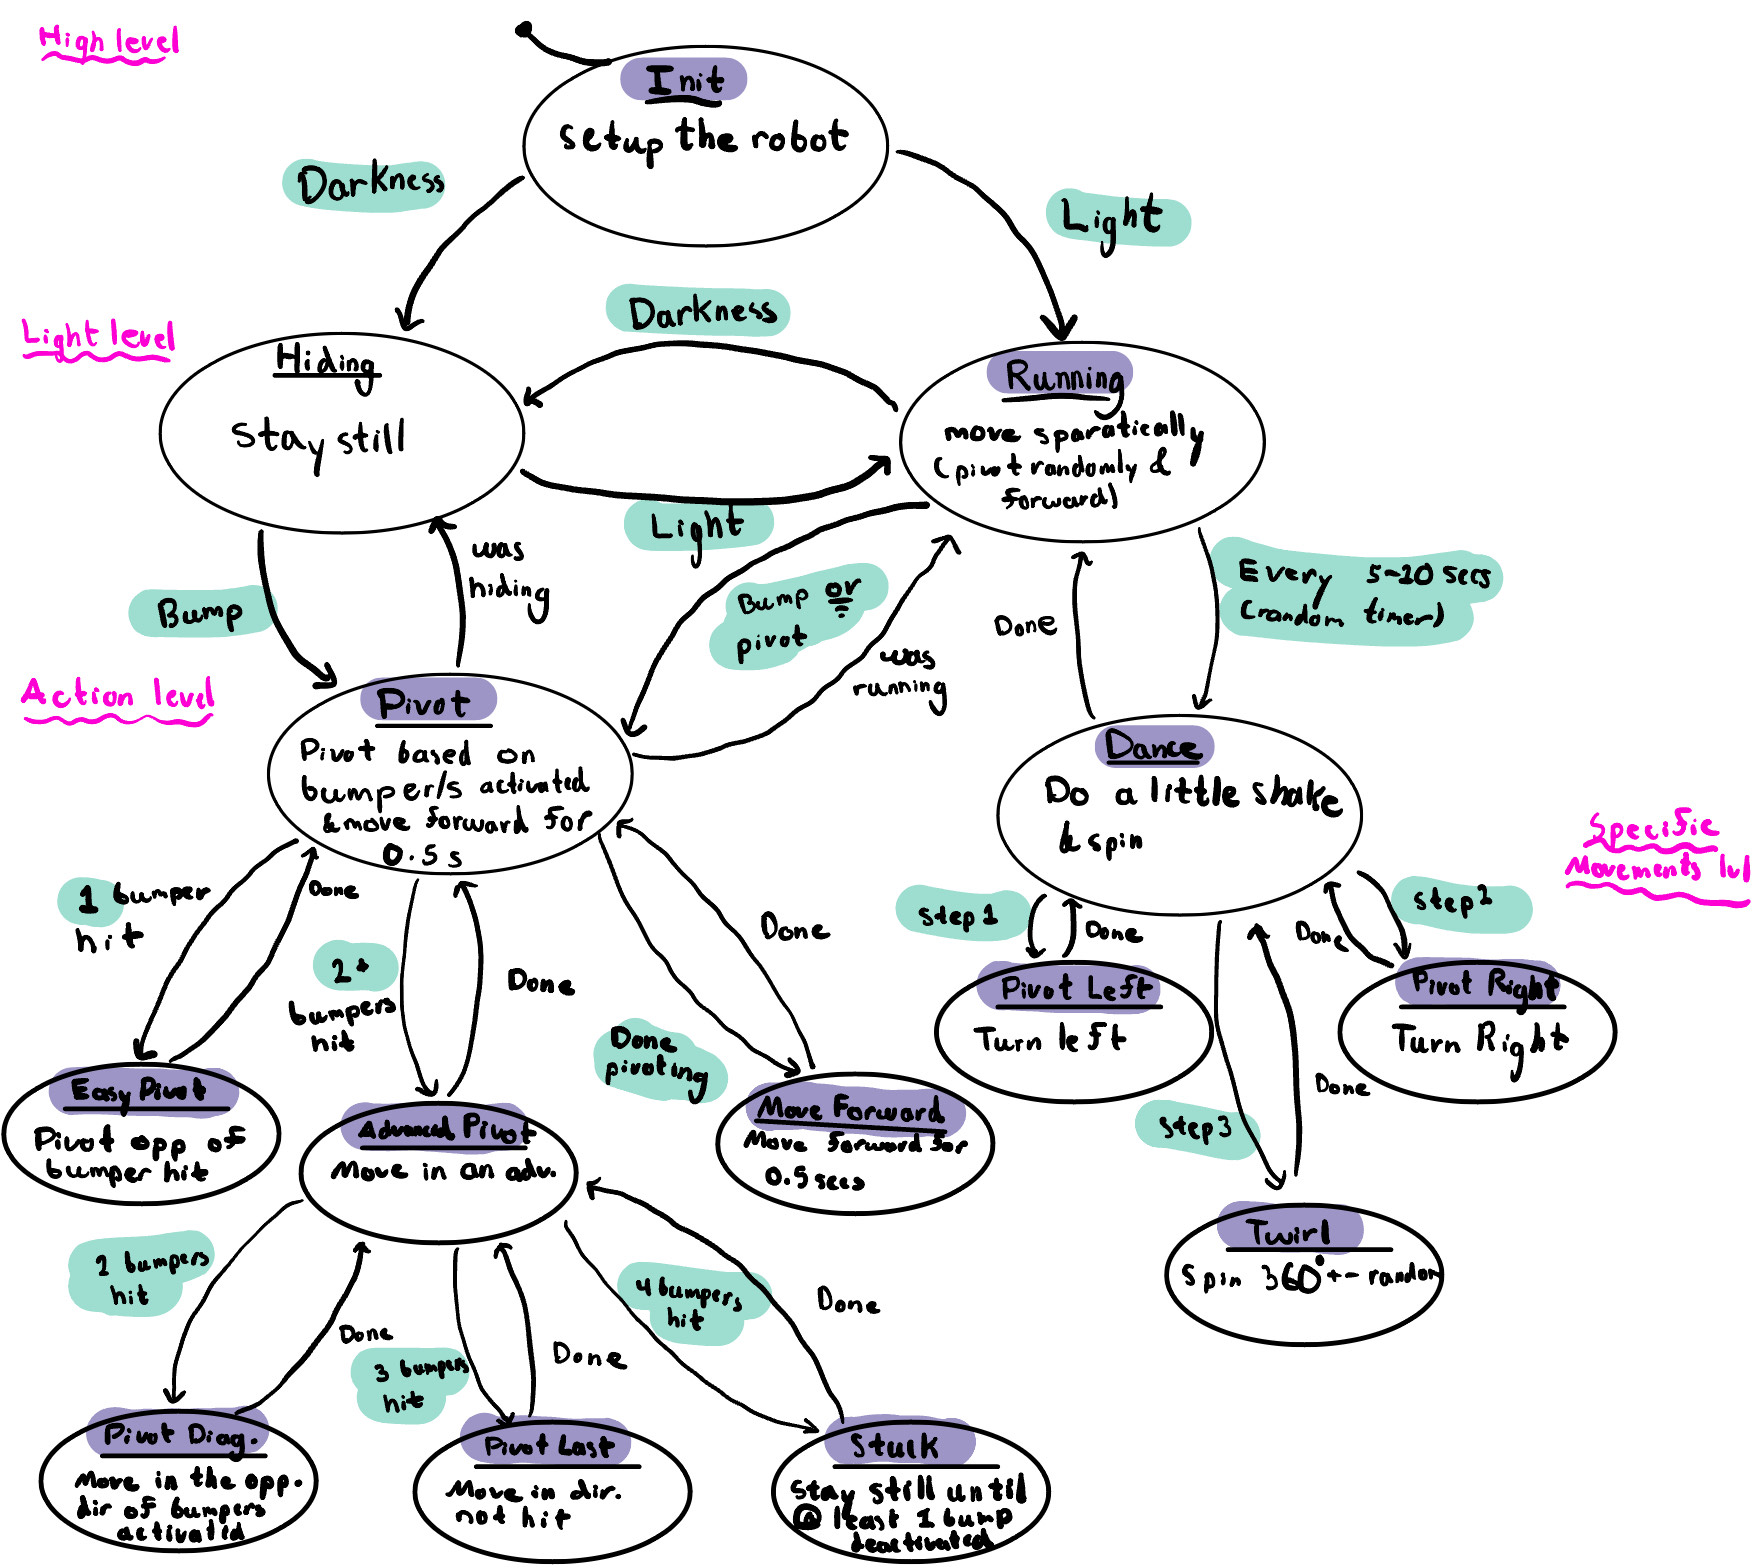 High level
Init
setup the robot
Darkness
Light
Light level
Darkness
Hiding
Stay still
Running
move sparatically
(pivot randomly &
forward)
Light
Bump
was
hiding
Bump or
pivot
was
running
Done
Every 5-10 secs
(random timer)
Action level
Pivot
Pivot based on
bumper/s activated
& move forward for
0.5 s
Dance
Do a little shake
& spin
Specific
Movements lvl
1 bumper
hit
Done
2+
bumpers
hit
Done
Done
Done
pivoting
step 1
Done
Done
step 2
Pivot Left
Turn left
Pivot Right
Turn Right
step 3
Done
Easy Pivot
Pivot opp of
bumper hit
Advanced Pivot
Move in an adv.
Move Forward
Move forward for
0.5 secs
Twirl
Spin 360°+- random
2 bumpers
hit
Done
3 bumpers
hit
Done
4 bumpers
hit
Done
Pivot Diag.
Move in the opp.
dir of bumpers
activated
Pivot Last
Move in dir.
not hit
Stuck
Stay still until
@ least 1 bump
deactivated